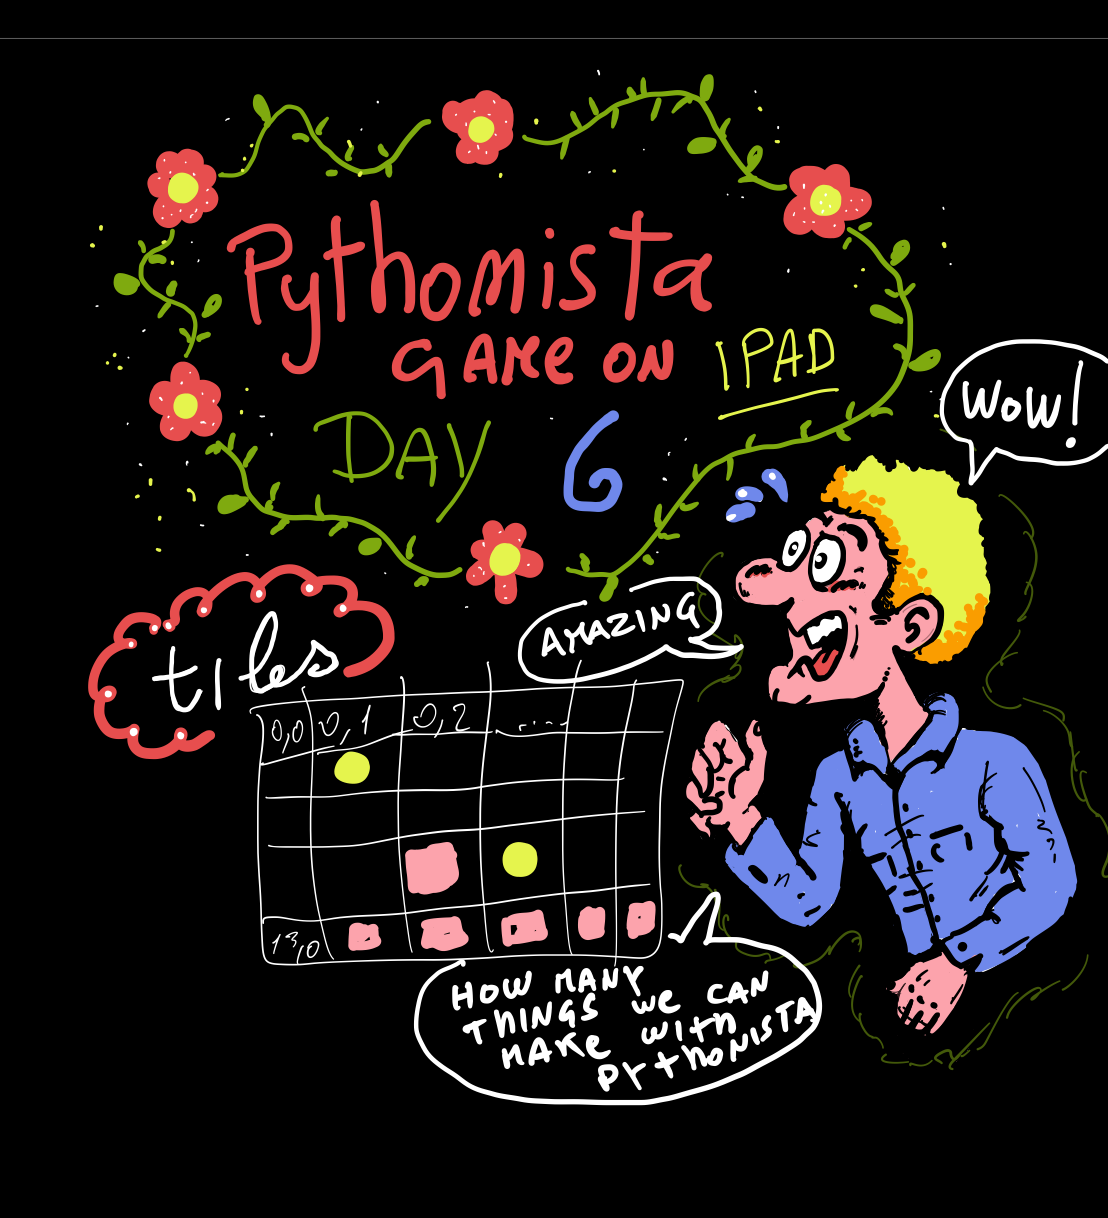 Pythonista
GAME ON IPAD
DAY 6
WOW!
AMAZING
tiles
0,0 0,1 0,2 .....
13,0
HOW MANY
THINGS WE CAN
MAKE WITH
PYTHONISTA